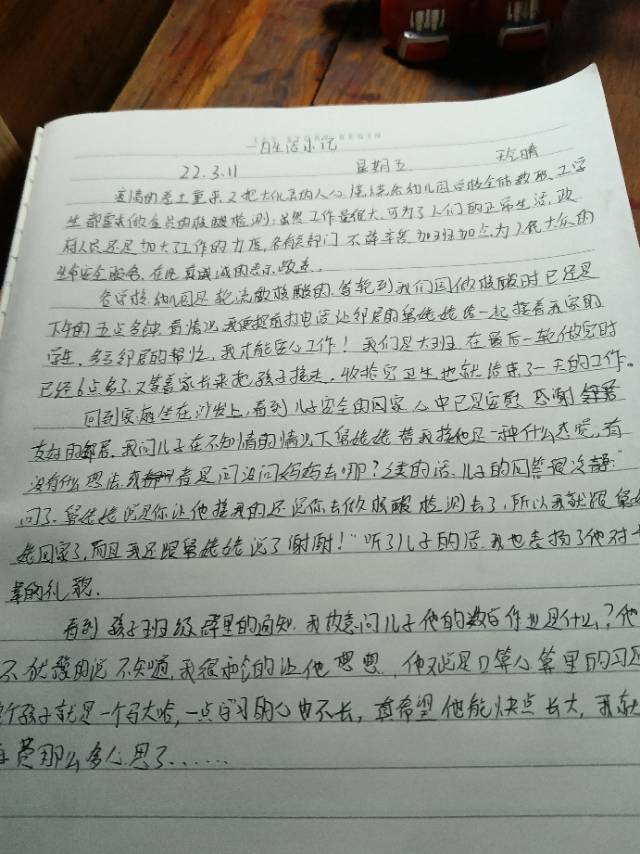 LIFE STORY BEGIN
一日生活小记
22.3.11 星期五 晴
疫情的卷土重来又把大化县的人心 幼儿园 全体教职工 学
生都要去做全员的核酸检测;虽然工作量很大,可为了人们的正常生活,政
府人员还是加大了工作的力度,各有关部门不辞辛苦加班加点为人民大众的
生命安全服务,在此真诚的表示敬意。
各学校幼儿园是轮流做核酸的,等轮到我们园做核酸时已经是
下午的五点多钟,看情况我便提前打电话让邻居的 姥姥给一起接着我家的
学生,多亏邻居的帮忙,我才能安心工作!我们是大班在最后一轮做完时
已经6点多了,又等着家长来把孩子接走,收拾完卫生也就结束了一天的工作。
回到家后坐在沙发上,看到儿子安全的回家,心中已是安慰,感谢
友好的邻居,我问儿子在不知情的情况下 姥姥替我接他是一种什么感觉,有
没有什么想法,或者是问没问妈妈去哪?之类的话,儿子的回答很冷静:"
问了, 姥姥说是你让他接我的还说你去做核酸检测去了,所以我就跟
姥回家了,而且我还跟 姥姥说了谢谢!"听了儿子的话,我也表扬了他对
辈的礼貌。
看到孩子班级群里的通知,我故意问儿子他的数学作业是什么?他
不犹豫的说不知道,我很 的让他想想,他又说是口算 算里的习题
个孩子就是一个马大哈,一点学习的心也不长,真希望他能快点长大,我就
费那么多心思了......